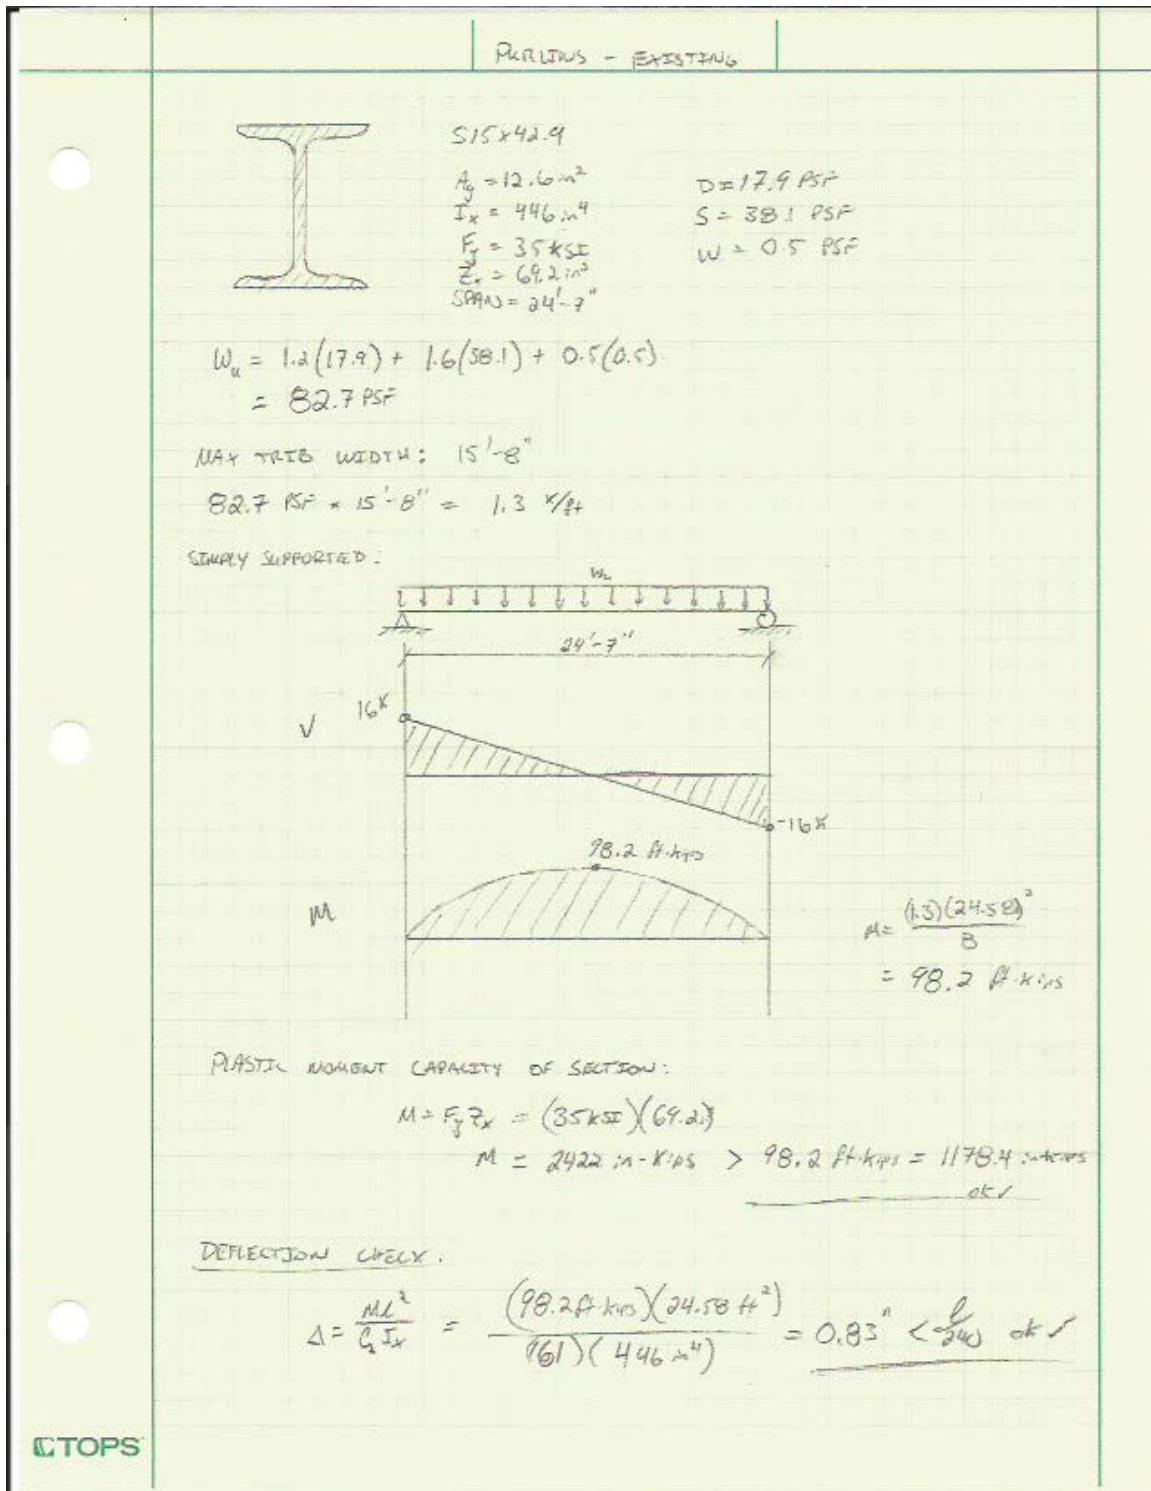 PURLINS - EXISTING
S15x42.9
Ag = 12.6 in²
Ix = 446 in⁴
Fy = 35 KSI
Zx = 69.2 in³
SPAN = 24'-7"
D = 17.9 PSF
S = 38.1 PSF
W = 0.5 PSF
Wu = 1.2(17.9) + 1.6(38.1) + 0.5(0.5)
= 82.7 PSF
MAX TRIB WIDTH: 15'-8"
82.7 PSF × 15'-8" = 1.3 K/ft
SIMPLY SUPPORTED:
24'-7"
V
16K
-16K
98.2 ft-kips
M
M = (1.3)(24.58)²
8
= 98.2 ft-kips
PLASTIC MOMENT CAPACITY OF SECTION:
M = Fy Zx = (35 KSI)(69.2)
M = 2422 in-kips > 98.2 ft-kips = 1178.4 in-kips
ok ✓
DEFLECTION CHECK:
Δ = Ml² / C₁Ix = (98.2 ft-kips)(24.58 ft²) / (161)(446 in⁴) = 0.83" < l/240 ok ✓
TOPS